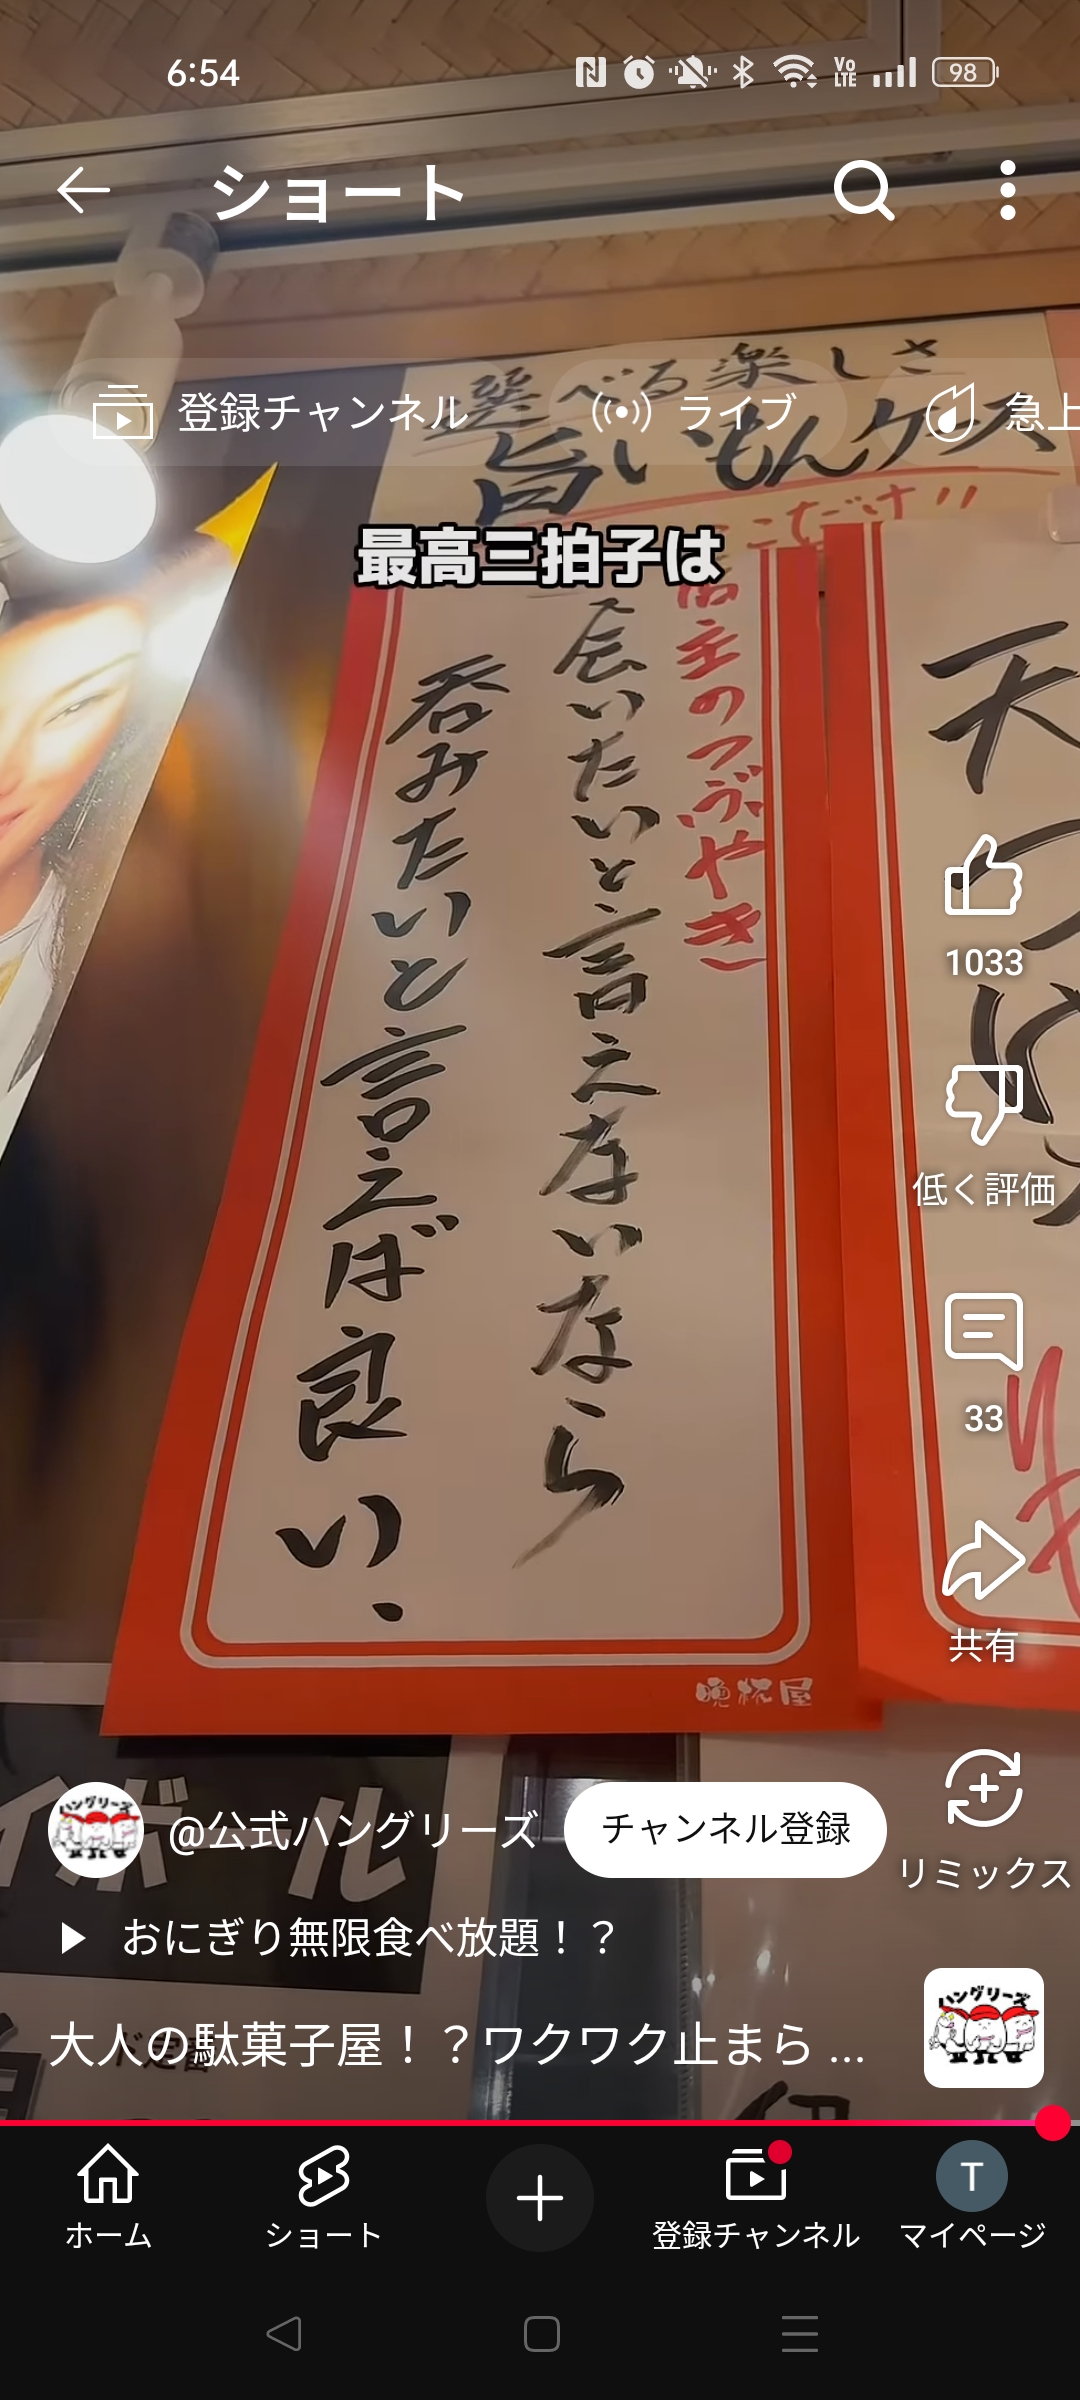 6:54
Vo LTE
98
ショート
登録チャンネル
ライブ
急上
選べる楽しさ
旨いもんケース
最高三拍子は
店主のつぶやき
会いたいと言えないなら
呑みたいと言えば良い、
天
晩杯屋
1033
低く評価
33
共有
リミックス
@公式ハングリーズ
チャンネル登録
おにぎり無限食べ放題！？
ハングリーズ
大人の駄菓子屋！？ワクワク止まら ...
ホーム
ショート
登録チャンネル
T
マイページ